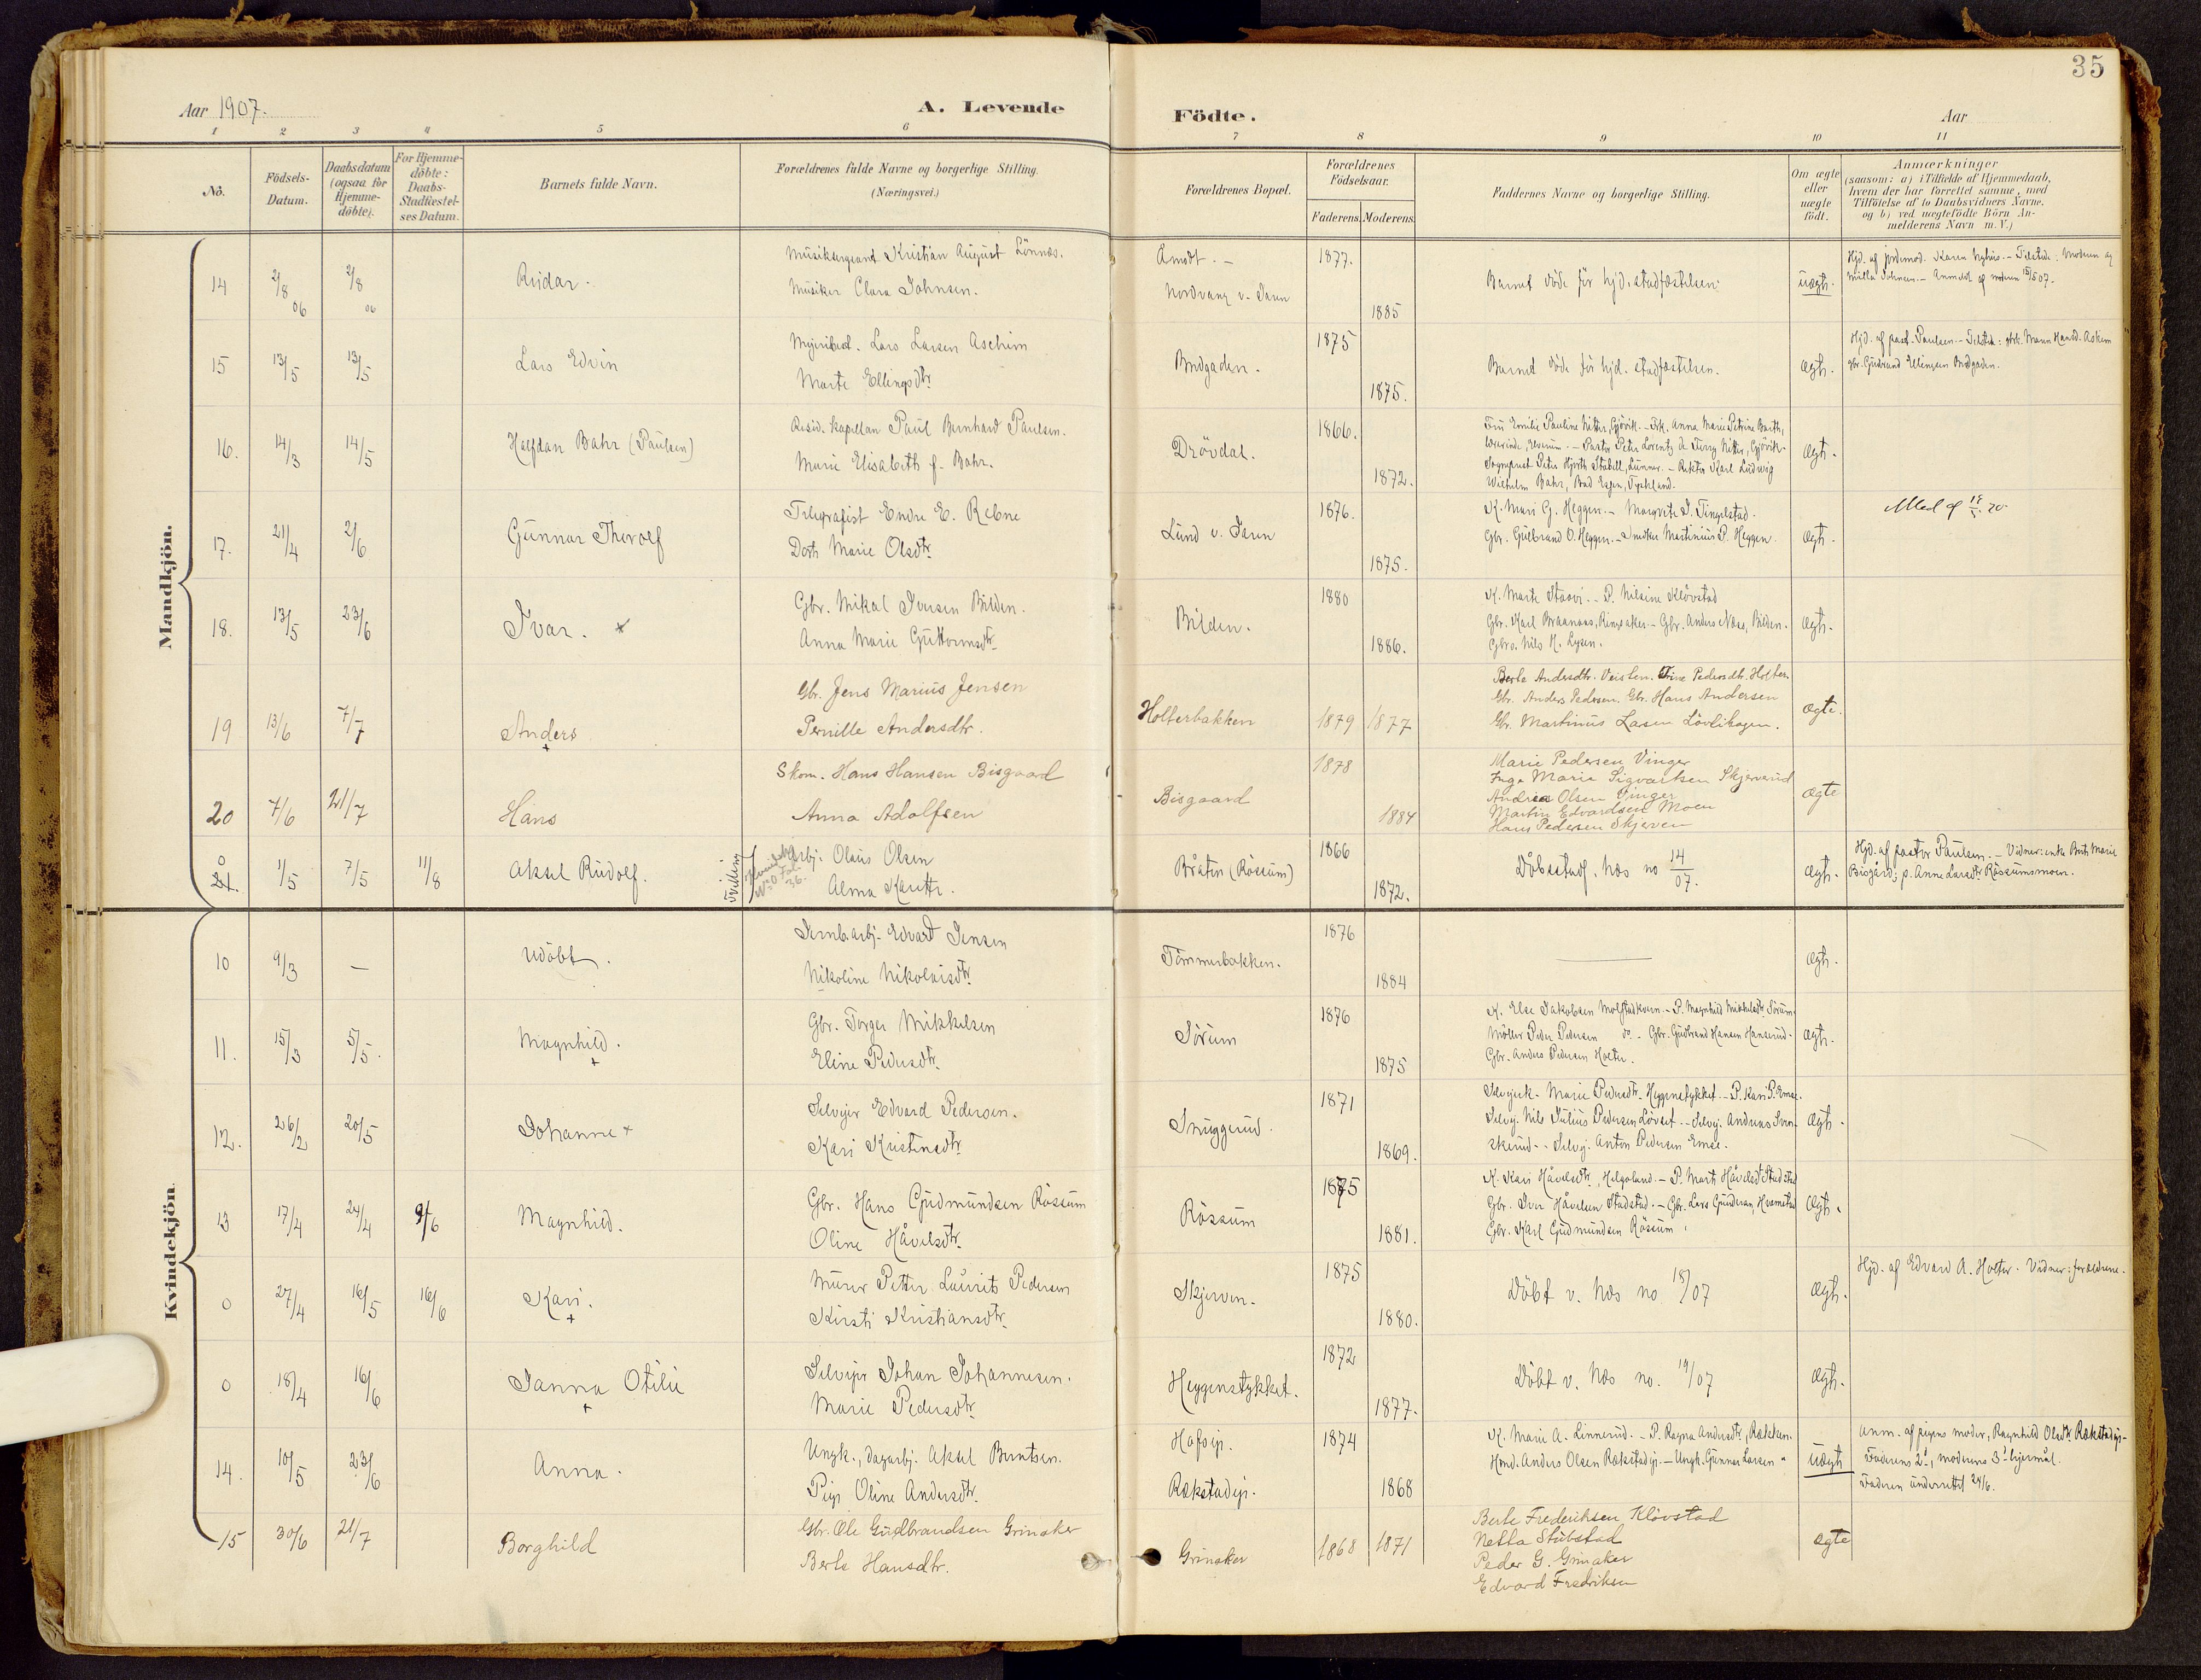 35
Aar 1907.
A. Levende
Födte.
Aar
1 2 3 4 5 6 7 8 9 10 11
No.
Födsels-Datum.
Daabsdatum (ogsaa for Hjemme-döbte).
For Hjemme-döbte: Daabs-Stadfæstel-ses Datum.
Barnets fulde Navn.
Forældrenes fulde Navne og borgerlige Stilling.
(Næringsvei.)
Forældrenes Bopæl.
Forældrenes Födselsaar.
Faderens. Moderens.
Faddernes Navne og borgerlige Stilling.
Om ægte eller uægte födt.
Anmærkninger
(saasom: a) i Tilfælde af Hjemmedaab,
hvem der har forrettet samme, med
Tilföielse af to Daabsvidners Navne,
og b) ved uægtefödte Börn An-
melderens Navn m. V.)
Mandkjön.
14 2/8 06 2/8 06 Reidar.
Kristian August Lönnæs.
Musiker Clara Johnsen.
Åmodt. -
Nordvang v. Jaren
1877.
1885
Barnet döde för hjd. stadfæstelsen.
uægte.
15 13/5 13/5 Lars Edvin
Lars Larsen Aschim
Marte Ellingsdtr.
1875
1875.
Barnet döde för hjd. stadfæstelsen.
ægte.
16. 14/3 14/5 Halfdan Bahr (Paulsen)
Resid. Kapellan Paul Bernhard Paulsen.
Marie Elisabeth f. Bahr.
Drövdal.
1866.
1872.
Fru Emilie Pauline Nitter, Gjövik. - Frk. Anna Marie Petrine Barth,
Wilhelm Bahr, Bad Essen, Tyskland.
ægte.
17. 21/4 2/6 Gunnar Thorolf
Telegrafist Endre E. Rebne
Dorth Marie Olsdtr.
Lund v. Jaren
1876.
1875.
K. Mari G. Heggen. - Margrete J. Tingelstad.
Gbr. Gulbrand O. Heggen. - Snedker Martinius P. Heggen.
ægte.
18. 13/5 23/6 Ivar. x
Gbr. Mikal Iversen Bilden.
Anna Marie Guttormsdtr.
Bilden.
1880
1886.
K. Marte Staavi. - P. Nilsine Klövstad
Gbr. Karl Braanaas, Ringsaker. - Gbr. Anders Næss, Bilden.
Gbrs. Nils H. Lysen.
ægte.
19 13/6 7/7 Anders +
Gbr. Jens Marius Jensen
Pernille Andersdtr.
Holterbakken
1879 1877
Berte Andersdtr. Veislen. Trine Pedersdtr. Holter.
Gbr. Anders Pedersen. Gbr. Hans Andersen
Gbr. Martinius Larsen Lövlihagen.
ægte.
20 7/6 21/7 Hans
Skom. Hans Hansen Bisgaard
Anna Adolfsen
Bisgaard
1878
1884
Marie Pedersen Vinger
Inga Marie Sigvartsen Skjerverud
Andrea Olsen Vinger
Martin Edvardsen Moen
Hans Pedersen Skjerven
ægte
0 21. 1/5 7/5 11/8 Aksel Rudolf.
Tvilling
arbj. Olaus Olsen
Alma Karitr.
Bråten (Rössum)
1866
1872.
Döbestadf. Næs no 14/07.
ægte.
Hjd. af pastor Paulsen. - Vidner: enke Berte Marie
Bisgård; p. Anne Larsdtr. Rössumsmoen.
Kvindekjön
10 9/3 — Udöbt.
Jernb.arbj. Edvard Jensen
Nikoline Nikolaisdtr.
Tömmerbakken.
1876
1884
ægte.
11. 15/3 5/5. Magnhild. +
Gbr. Torger Mikkelsen
Eline Pedersdtr.
Sörum
1876
1875
K. Else Jakobsen Molstadkvern. - P. Magnhild Mikkelsdtr. Sörum.
Möller Peder Pedersen do - Gbr. Gudbrand Hansen Hanserud.
Gbr. Anders Pedersen Holter.
ægte.
12. 26/2 20/5 Johanne +
Selvejer Edvard Pedersen.
Kari Kristensdtr.
Snuggerud.
1871
1869.
Selvejerk. Marie Pedersdtr. Heggenstykket. - P. Kari P. Emse.
Selvej. Nils Julius Pedersen Lövset. - Selvej. Andreas Svensskerud. - Selvej. Anton Pedersen Emse.
ægte.
13 17/4 24/4 9/6 Magnhild.
Gbr. Hans Gudmundsen Rössum
Oline Håvelsdtr.
Rössum
1875
1881.
K. Kari Håvelsdtr., Helgoland. - P. Marte Håvelsdtr. Stadstad
Gbr. Iver Håvelsen Stadstad. -
Gbr. Karl Gudmundsen Rössum.
ægte.
0 27/4 16/5 16/6 Kari. +
Murer Petter Laurits Pedersen
Kirsti Kristiansdtr.
Skjerven.
1875
1880.
Döbt v. Næs no 18/07
ægte.
Hjd. af Edvard A. Holter. Vidner: forældrene.
0 18/4 16/6 Janna Otilie +
Selvejer Johan Johannesen.
Marie Pedersdtr.
Heggenstykket.
1872
1877.
Döbt v. Næs no. 19/07
ægte.
14. 10/5 23/6 Anna.
Ungk., dagarbj. Aksel Berntsen.
Pige Oline Andersdtr.
Hofsej.
Rækstadej.
1874
1868
K. Marie A. Linnerud. - P. Ragna Andersdtr., Rækken.
Hmd. Anders Olsen Rækstadej. - Ungk. Gunnar Larsen "
uægte
Anm. af pigens moder, Ragnhild Olsdtr. Rækstadej. -
Faderens 2', moderens 3' lejermål.
Faderen underrettet 24/6.
15 30/6 21/7 Borghild
Gbr. Ole Gudbrandsen Grinaker
Berte Hansdtr.
Grinaker
1868 1871
Berte Frederiksen Klövstad
Netta Stubstad
Peder G. Grinaker
Edvard Fredriksen
ægte